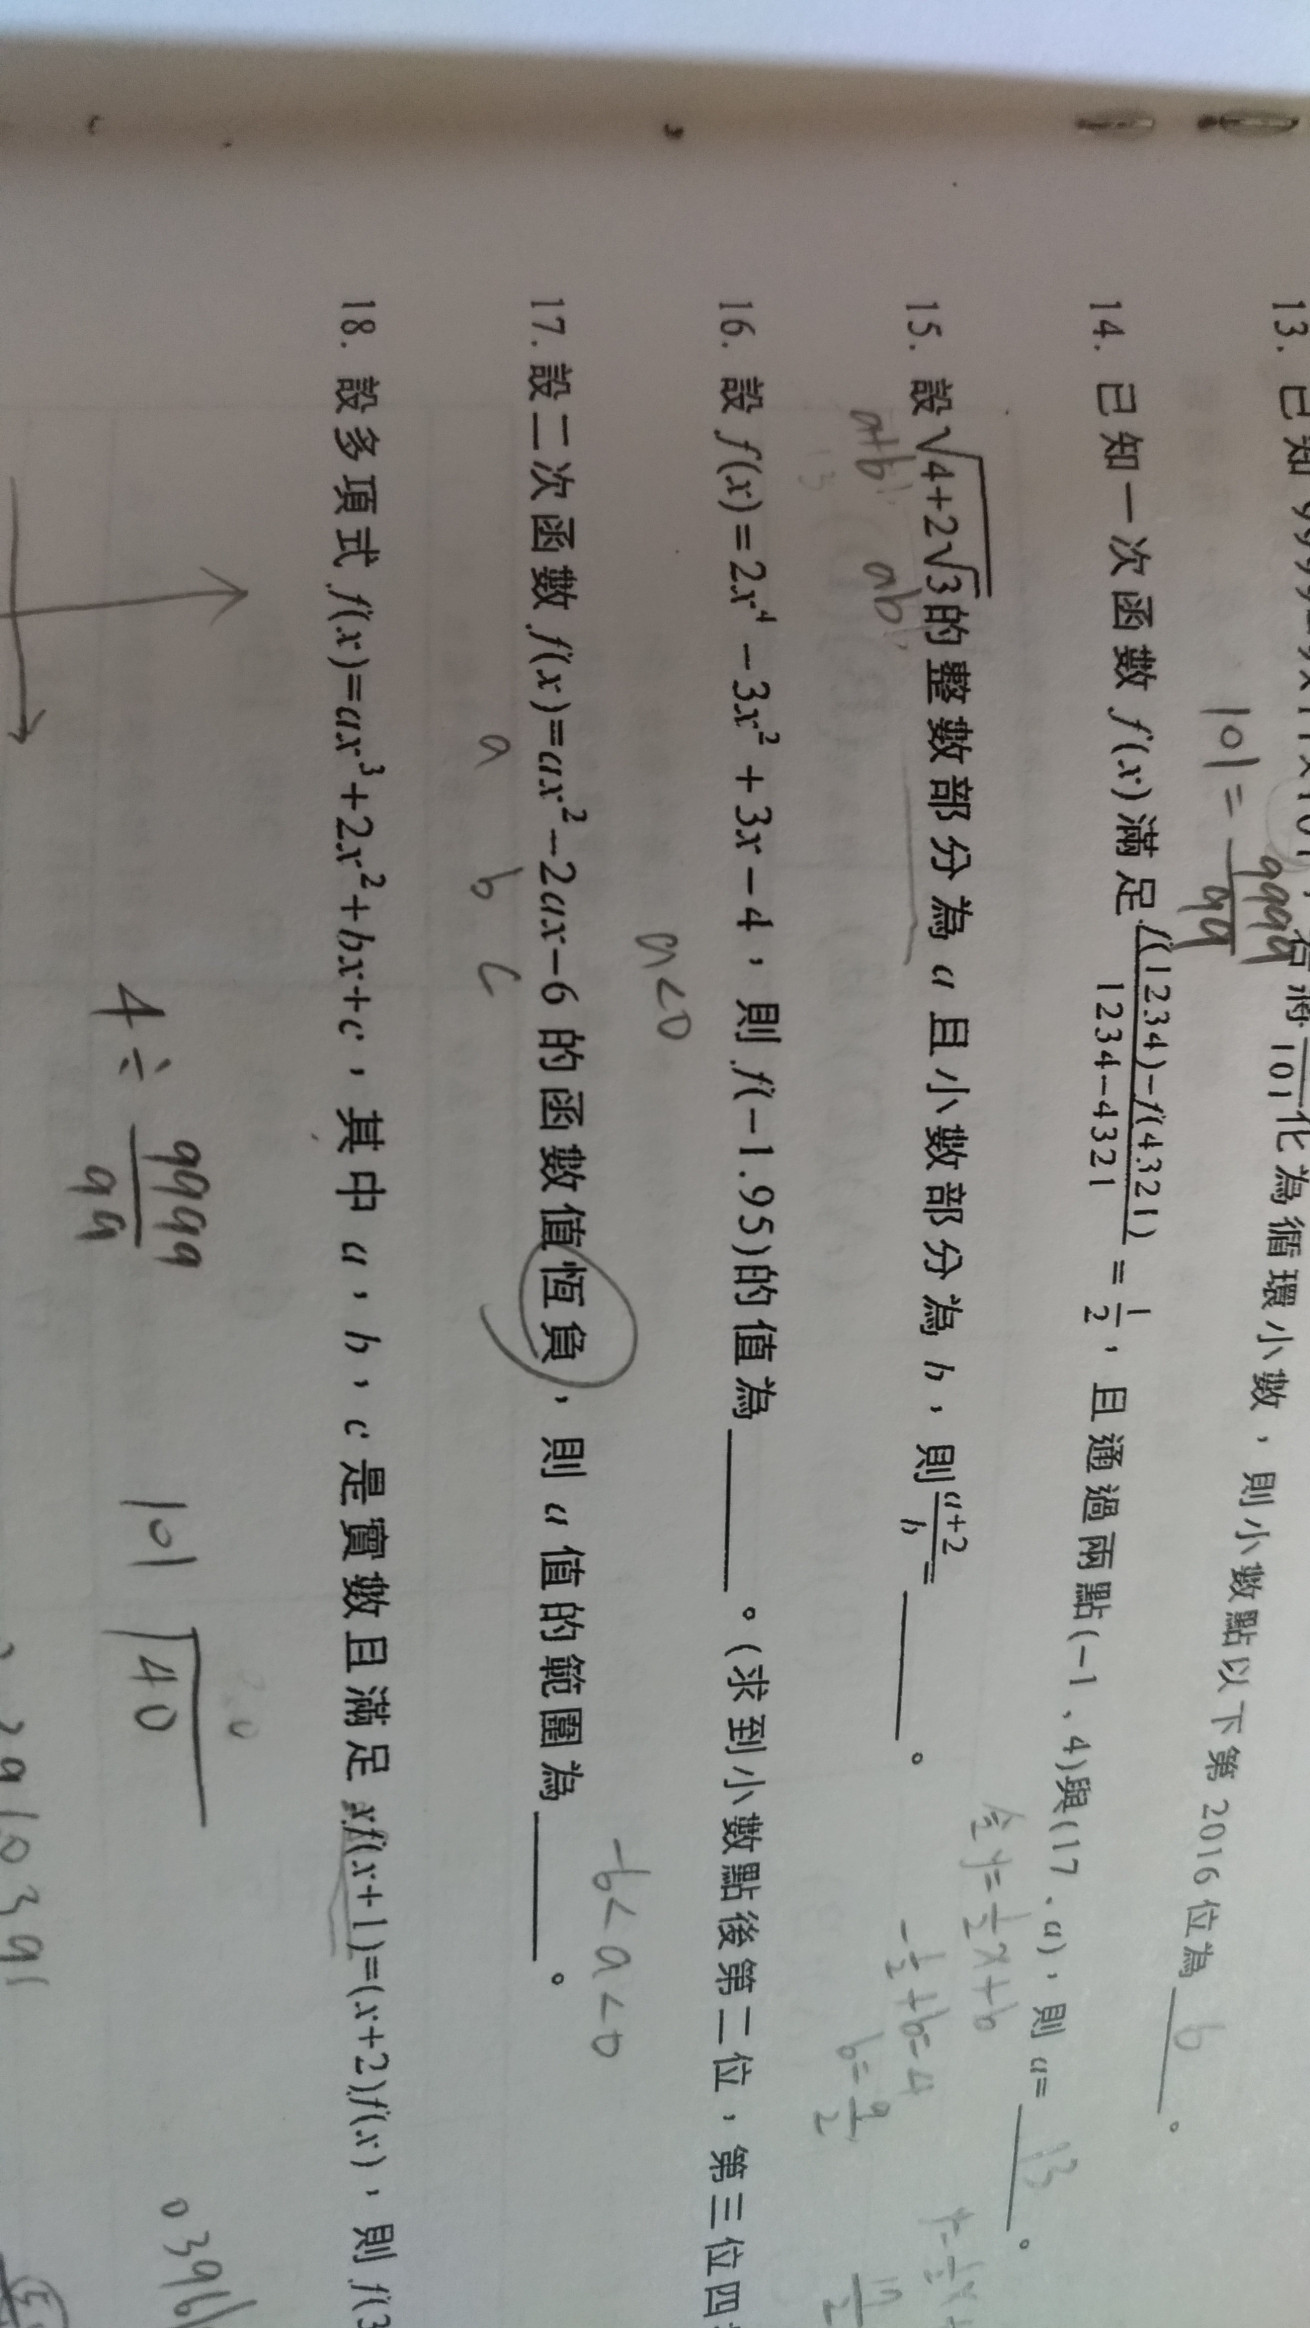 13. 已知 ，若將 101 化為循環小數，則小數點以下第 2016 位為 6 。
101 = 9999/99
14. 已知一次函數 f(x) 滿足 (f(1234)-f(4321))/(1234-4321) = 1/2，且通過兩點(-1、4)與(17、a)，則 a= 13 。
令 y = 1/2 x + b
-1/2 + b = 4
b = 9/2
15. 設√(4+2√3)的整數部分為 a 且小數部分為 b，則 (a+2)/b = 。
a+b ab
16. 設 f(x)=2x⁴-3x²+3x-4，則 f(-1.95)的值為 。(求到小數點後第二位，第三位四
a<0
17. 設二次函數 f(x)=ax²-2ax-6 的函數值恆負，則 a 值的範圍為 。
-6<a<0
a b c
18. 設多項式 f(x)=ax³+2x²+bx+c，其中 a，b，c 是實數且滿足 xf(x+1)=(x+2)f(x)，則 f(3
4 ÷ 9999/99
101 40
0396